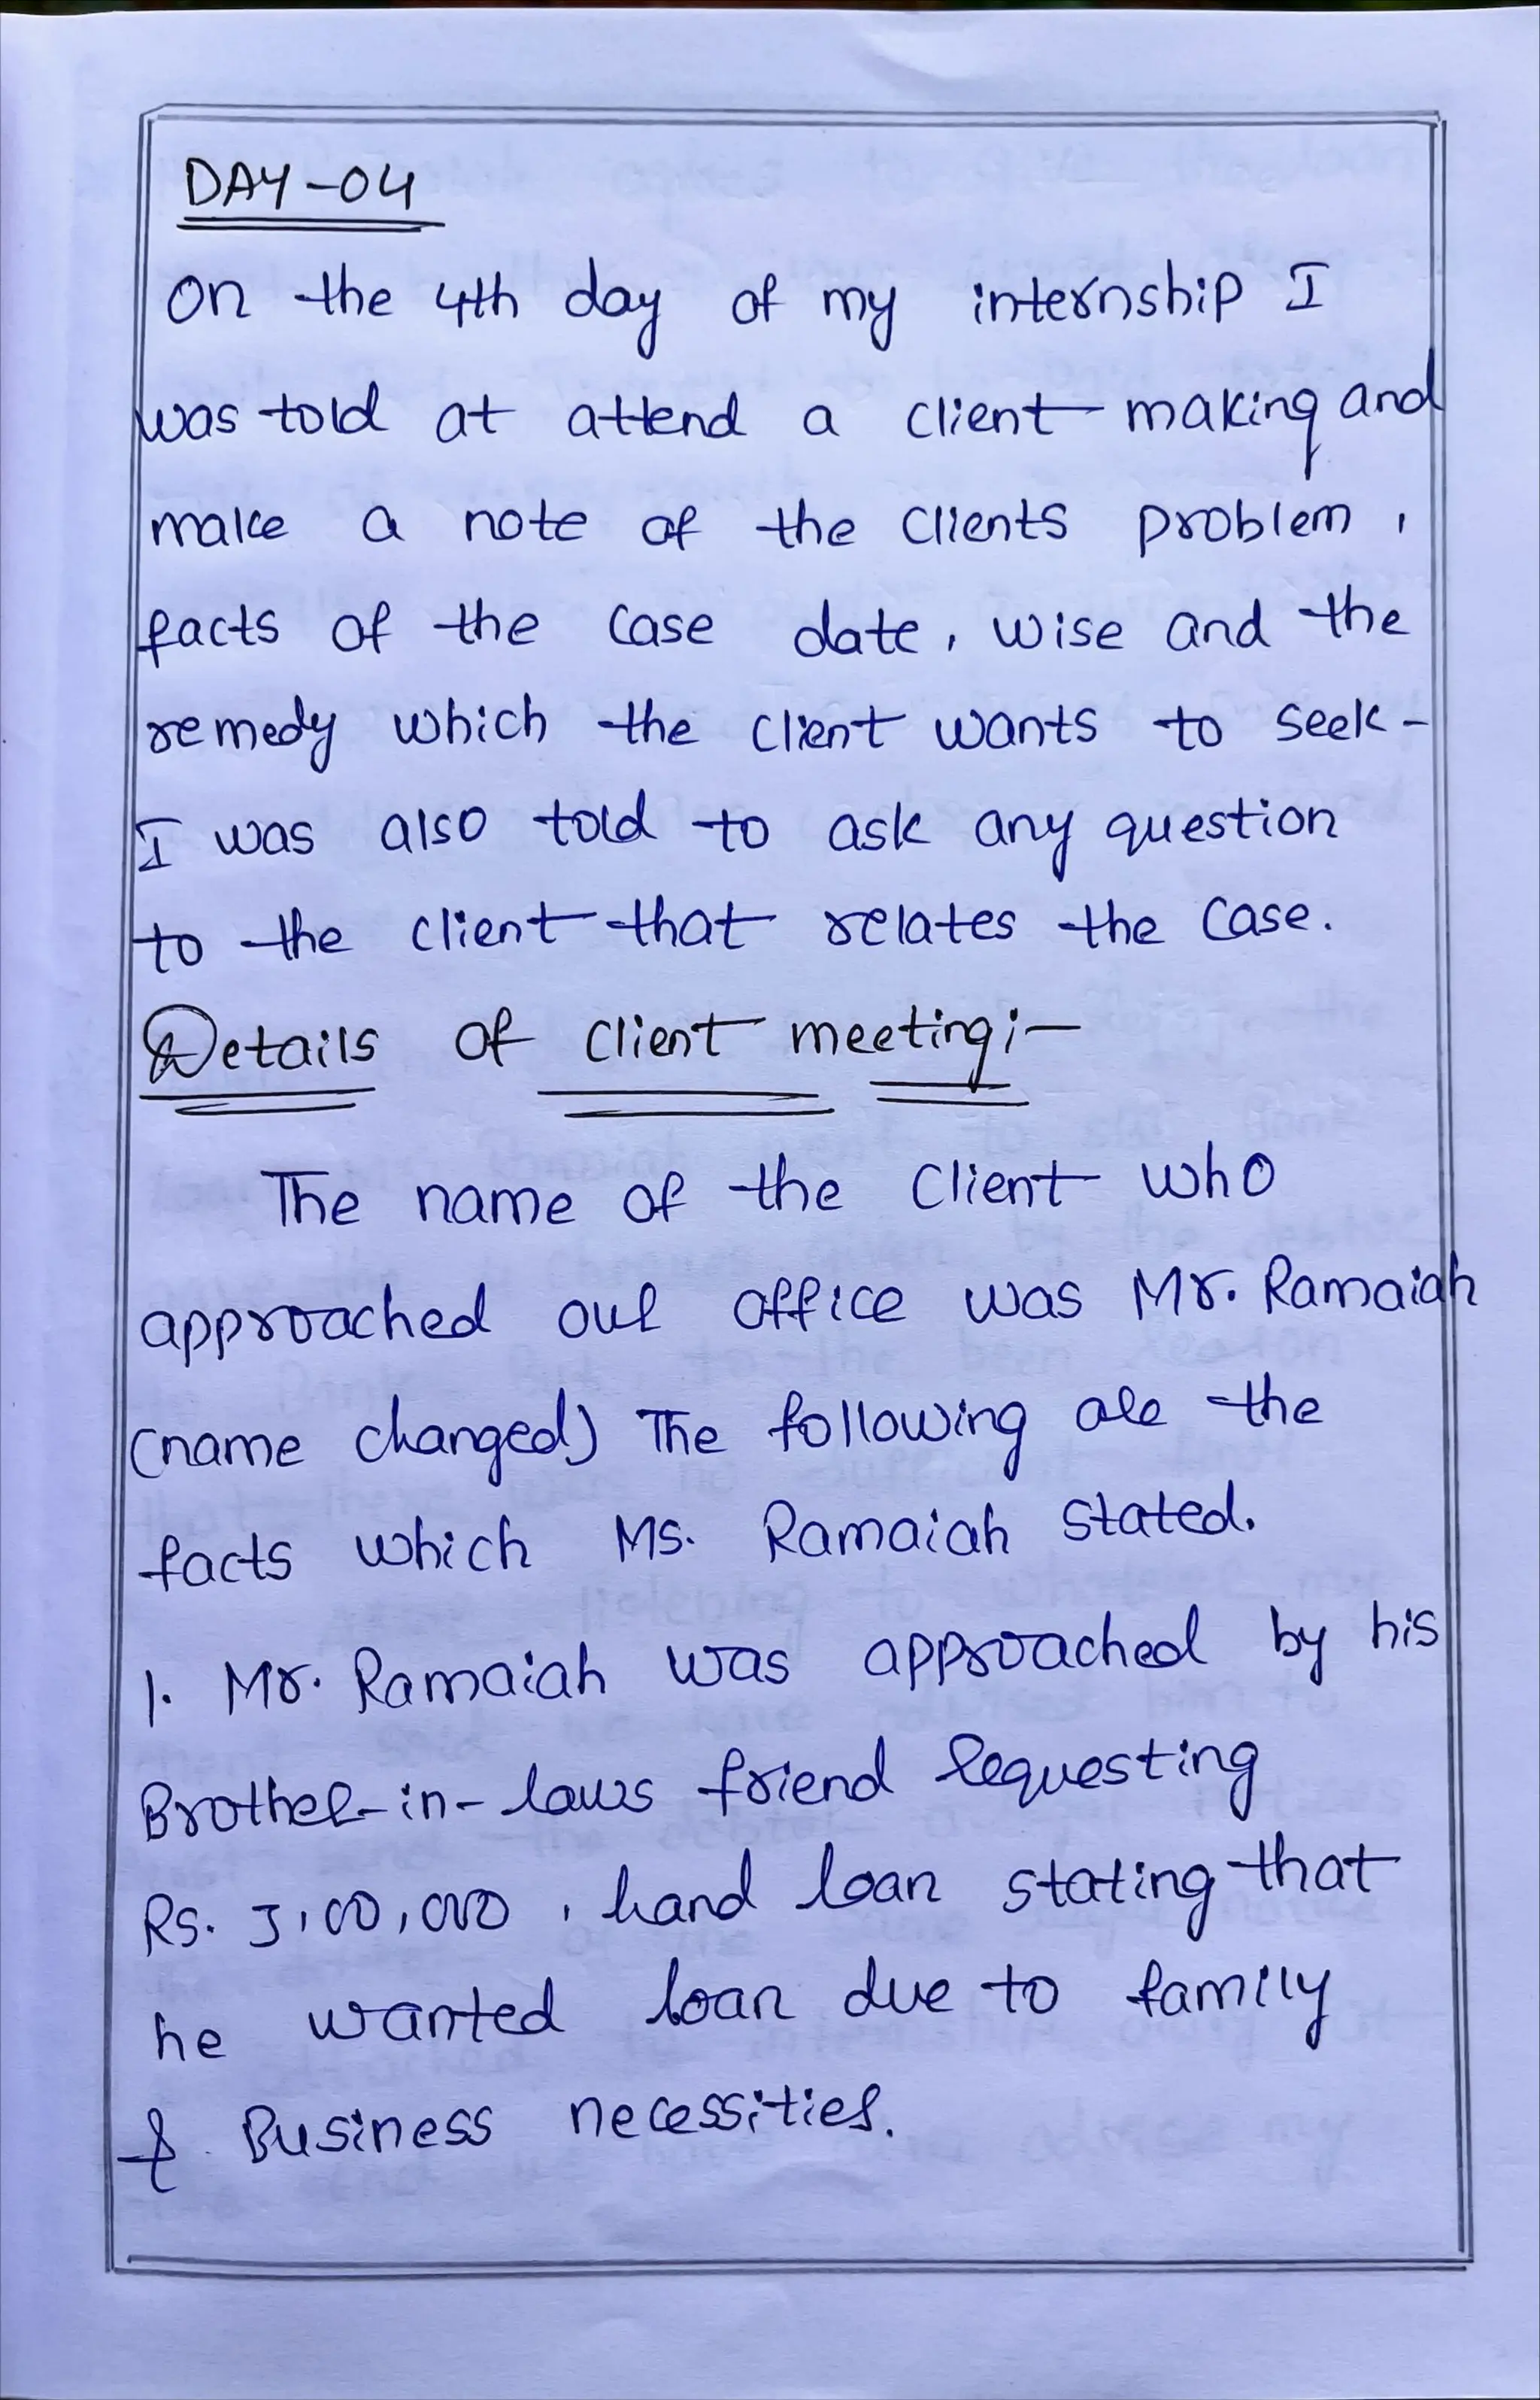 DAY-04
On the 4th day of my internship I
was told at attend a client making and
make a note of the clients problem,
facts of the case date, wise and the
remedy which the client wants to seek-
I was also told to ask any question
to the client that relates the case.
Details of client meeting;-
The name of the client who
approached our office was Mr. Ramaiah
(name changed) The following are the
facts which Ms. Ramaiah stated.
1. Mr. Ramaiah was approached by his
Brother-in-laws friend requesting
Rs. 3,00,000, hand loan stating that
he wanted loan due to family
& Business necessities.